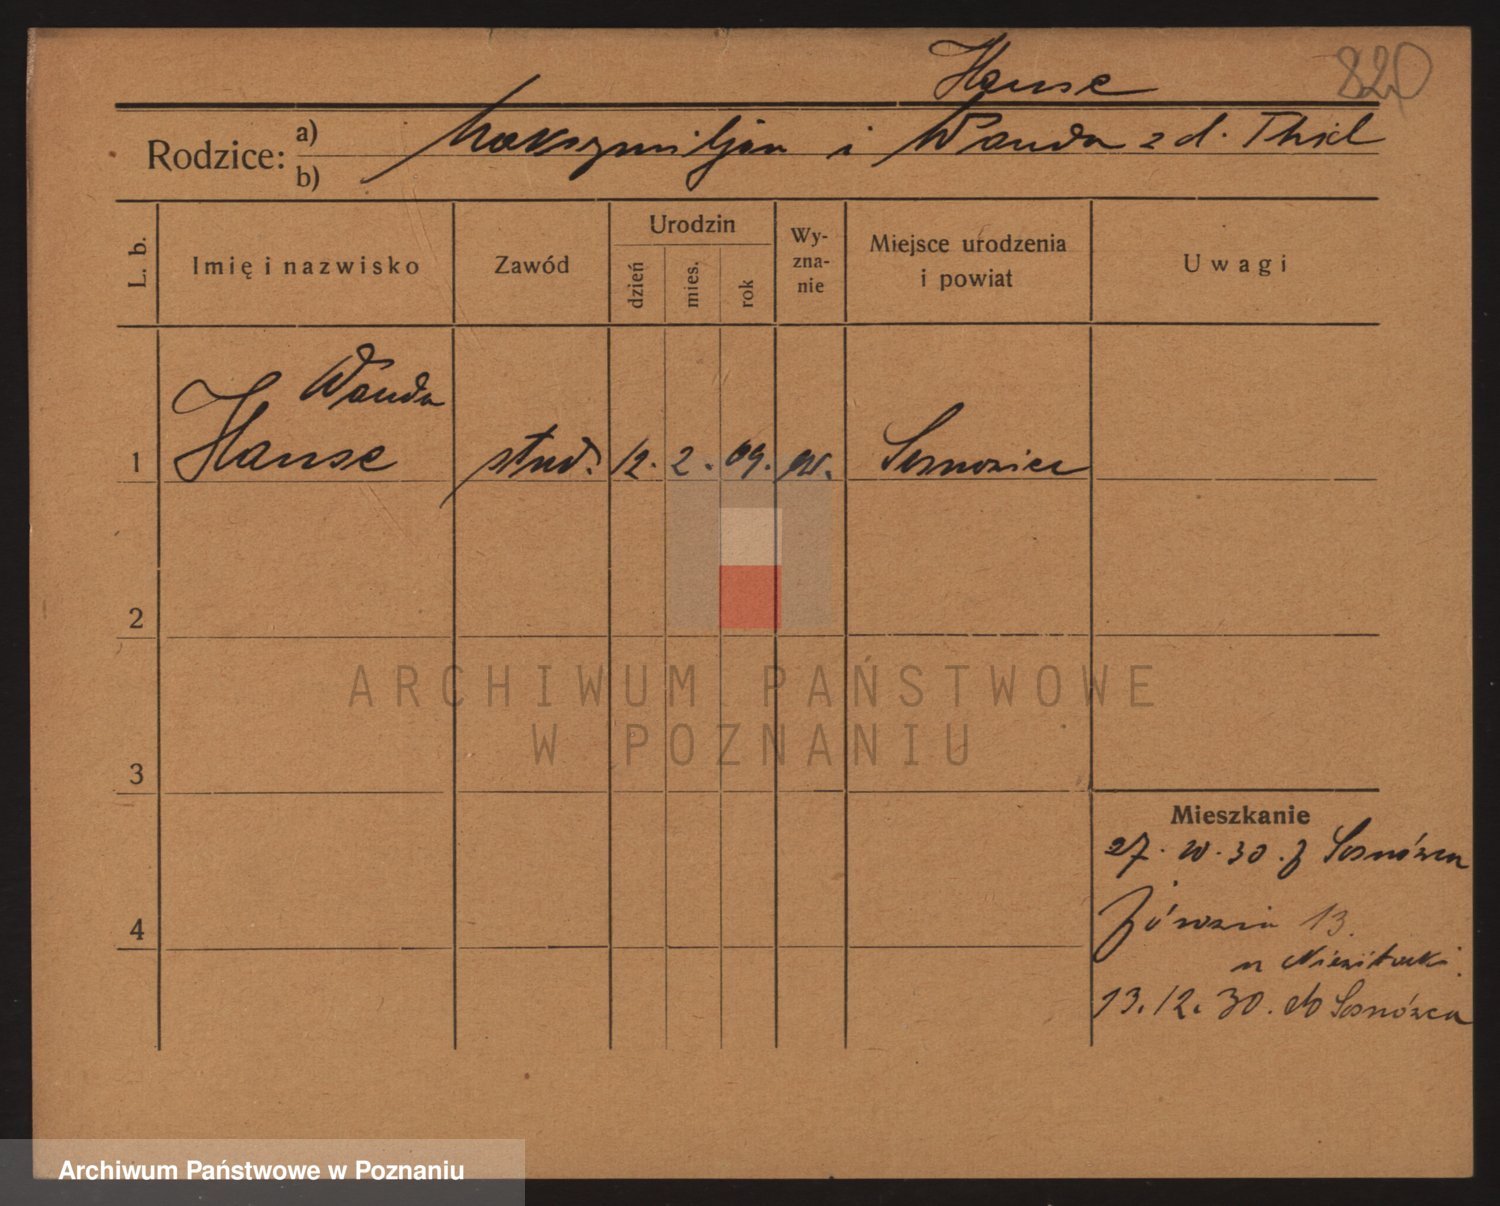 Hanse 820
Rodzice: a) b) Maksymiljan i Wanda z d. Thiel
L. b.
Imię i nazwisko
Zawód
Urodzin
dzień
mies.
rok
Wy-
zna-
nie
Miejsce urodzenia
i powiat
Uwagi
Wanda
1 Hanse stud. 12. 2. 09. Sosnowiec
2
3
4
ARCHIWUM PAŃSTWOWE
W POZNANIU
Mieszkanie
27. 30. z Sosnówca
13.
13. 12. 30. do Sosnówca
Archiwum Państwowe w Poznaniu